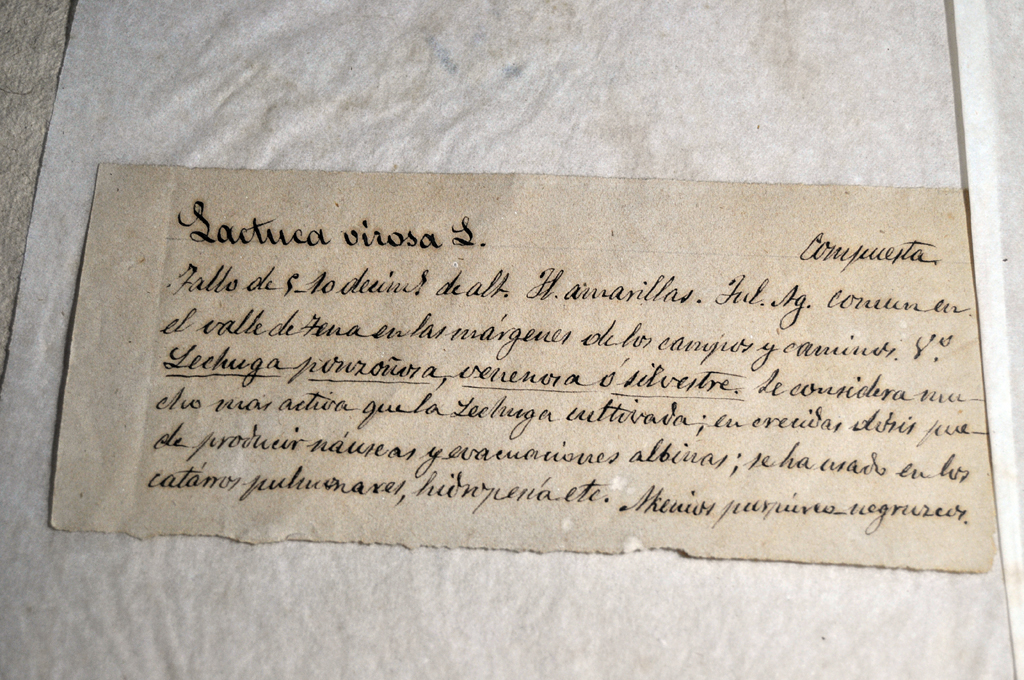 Lactuca virosa L.
Compuesta.
Tallo de 5-10 decim.s de alt. Fl. amarillas. Jul. Ag. comun en
el valle de Tena en las márgenes de los campos y caminos. V.o
Lechuga ponzoñosa, venenosa ó silvestre. Se considera mu-
cho mas activa que la Lechuga cultivada; en crecidas dósis pue-
de producir náuseas y evacuaciones albinas; se ha usado en los
catárros pulmonares, hidropesía etc. Akenios purpúreo-negruzcos.